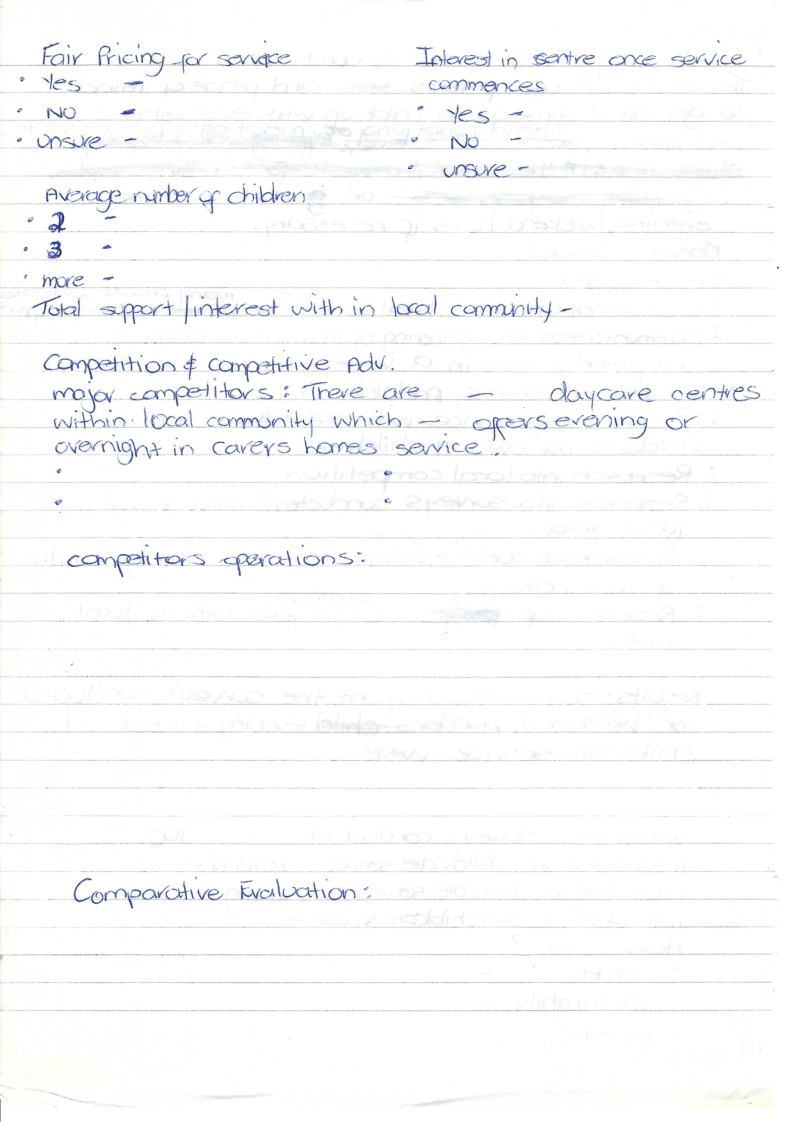 Fair Pricing for service
• Yes -
• NO -
• unsure -
Interest in sentre once service
commences
• Yes -
• No -
• unsure -
Average number of children
• 2 -
• 3 -
• more -
Total support/interest with in local community -
Competition & competitive Adv.
major competitors: There are — daycare centres
within local community which — offers evening or
overnight in carers homes service.
•
•
•
•
competitors operations:
Comparative Evaluation: